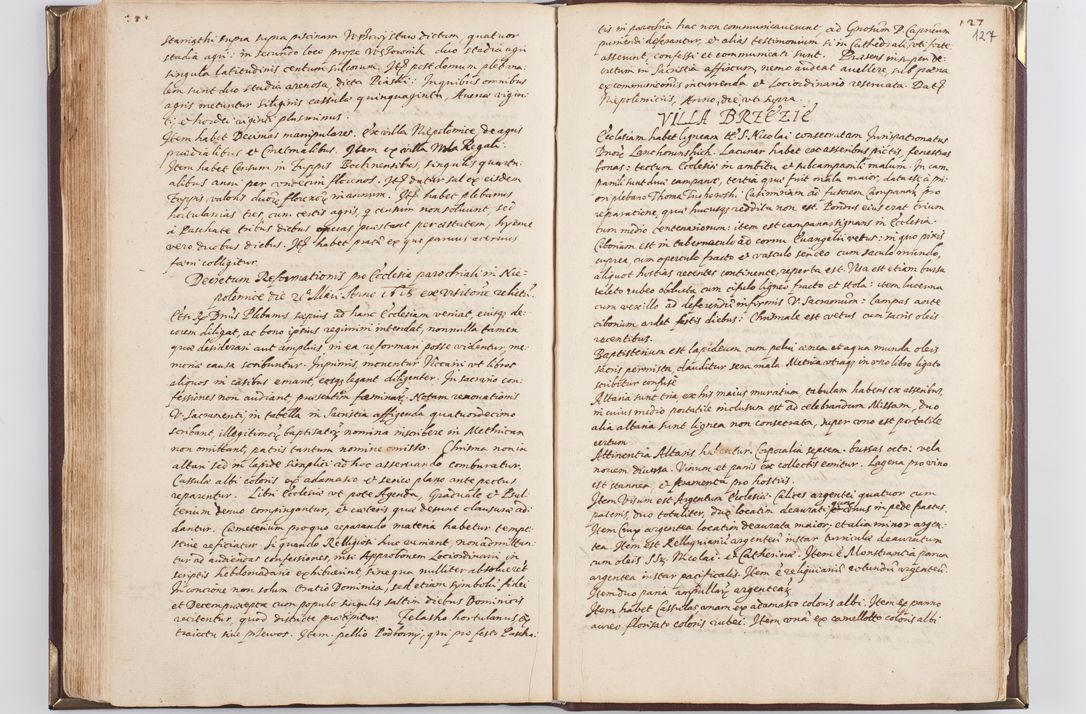 stariathi supra supra piscinam W Jowistus dictum, quatuor
studia agri: in secundo loco prope Vs Jowonik duo studia agri
singula latitudinis centum sulcorum. Itẽ post domum pleba-
lem sunt duo studia arenosa, dicta Piaski: In quibus omnibus
agris metuntur siliginis cassulæ quinquaginta, Auenæ vigin-
ti, et hordei viginti plus minus.
Item habet Decimas manipulares. Ex villa Niepolomice de agris
prædialibus et Cmetonalibus. Item ex villa Wola Regali.
Item habet Censum in Zuppis Bochnensibus, singulis quarta-
alibus anni per undecim florenos. Itẽ datur sal ex eisdem
Zuppis valoris duorũ florenorũ in annum. Itẽ habet plebanus
hortulanias tres, cum certis agris, qui censum non soluunt, sed
à Paschate tribus diebus operas præstant per æstatem, hyeme
vero duobus diebus. Itẽ habet pratũ ex quo paruus aceruus
fæni colligitur.
Decretum Reformationis pro Ecclesia parochiali in Nie-
polomice die 21 Maii Anno ex visitone relictũ.
Etsi Dñus Plebanus sæpius ad hanc Ecclesiam veniat, eiusq; de-
corem diligat, ac bono ipsius regimini intendat, nonnulla tamen
quæ desiderari aut amplius in ea reformari posse videntur, me-
moriæ causa scribuntur. Inprimis, monentur Vicarii vt libros
aliquos in casibus emant, eosq; legant diligenter. In sacrario con-
fessiones non audiant, præsertim fæminarũ. Notam renouationis
V. Sacramenti, in tabella in Sacristia affigenda quatuordecimo
scribant, illegitimorũ baptisatorũ nomina inscribere in Methricam
non omittant, patris tantum nomine omisso. Chrisma non in
altari sed in lapide simplici ad hoc asseruando comburatur.
Cassula albi coloris ex adamasco et serico plano ante pectus
reparentur. Libri Ecclesiæ vt pote Agenda, Graduale et Psal-
terium denuo compingantur, et cæteris quæ desunt clausuræ ad-
dantur. Cæmeterium pro quo reparando materia habetur tempe-
stiue reficiatur. Si quando Religiosi huc veniant non admittan-
tur ad audiendas confessiones, nisi Approbatonem Lociordinarij in
scriptis hebdomadariis exhibuerint, sine qua nulliter absoluerẽt
In concione non solum Oratio Dominica, sed etiam Symbolũ fidei
et Decem præcepta cum populo singulis saltim diebus Dominicis
recitentur, quod districte præcipitur. Felasko hortulanus
traiectu siue przewos. Item pellio Podrozny, qui pro festo Pascha-
127
127
tis in parochia hac non communicauerunt, ad Gnosum D. Capneum
puniendi deferantur, et alias testimonium si in Cathedrali, vt forte
asserunt, confessi et communicati sunt. Præsens insuper de-
cretum in Sacristia affixum, nemo audeat auellere, sub pæna
excommunicionis incurrenda et Lociordinario reseruata. Datũ
Niepolomiciis, Anno, die vt supra.
VILLA BRZEZIE
Ecclesiam habet ligneam tt. S. Nicolai consecratam Jurispatronatus
Gnorũ Lanchoruinskich. Lacunar habet ex asseribus pictis, fenestras
bonas: tectum Ecclesiæ in ambitu et sub campanili malum. In cam-
panili sunt duæ campanæ, tertia quæ fuit mala maior, data est à pri-
ori plebano Thoma Suchoroski Casimiriam ad fusorem campanarũ pro
reparatione, quæ hucusq; reddita non est. Pondus eius erat trium
cum medio centenariorum: item est campana signans in Ecclesia.
Ciborium est in tabernaculo ad cornu Euangelii vetus: in quo pixis
cuprea cum operculo fracto et vasculo serico cum saculo mundo,
aliquot hostias recentes continente, reperta est. Vsa est etiam bursa
teleto rubeo obducta cum cifulo ligneo fracto et stola: item lucerna
cum vexillo ad deferendũ infirmis V. Sacramentum: lampas ante
ciborium ardet festis diebus: Chrismale est vetus cum sacris oleis
recentibus.
Baptisterium est lapideum cum pelui ænea et aqua munda oleis
sacris permista clauditur sera mala. Metrica vtraq; in vno libro ligato
scribitur confuse
Altaria sunt tria, ex his maius muratum, tabulam habens ex asseribus,
in cuius medio portatile inclusum est ad celebrandum Missam, duo
alia altaria sunt lignea non consecrata, super vno est portatile
certum
Attinentia Altaris habentur. Corporalia septem: bursas octo: vela
nouem diuersa. Vinum et panis ex collectis emitur. Lagena pro vino
est stannea, et feramenta pro hostiis.
Item Visum est Argentum Ecclesiæ. Calices argentei quatuor cum
patenis, duo totaliter, duo locatim deaurati, quorũ vnus in pede fractus.
Item Crux argentea locatim deaurata maior, et alia minor argen-
tea. Item est Relliquiarium argenteũ instar turriculæ deauratum
cum oleis SS. Nicolai et Catherinæ. Item è Monstrantia parua
argentea instar pacificalis. Item è reliquiariũ rotundũ argenteũ.
Item duo paria ampullarũ argentearũ
Item habet cassulas vnam ex adamasco coloris albi. Item ex panno
aureo florisato coloris rubei. Item vnã ex camellotto coloris albi